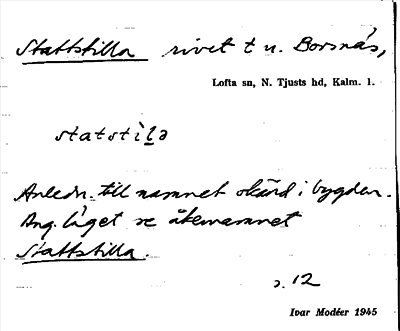 Stattstilla rivet t u. Borsnäs,
Lofta sn, N. Tjusts hd, Kalm. l.
statstìlə
Anledn. till namnet okänd i bygden.
Ang. läget se åkernamnet
Stattstilla.
s. 12
Ivar Modéer 1945